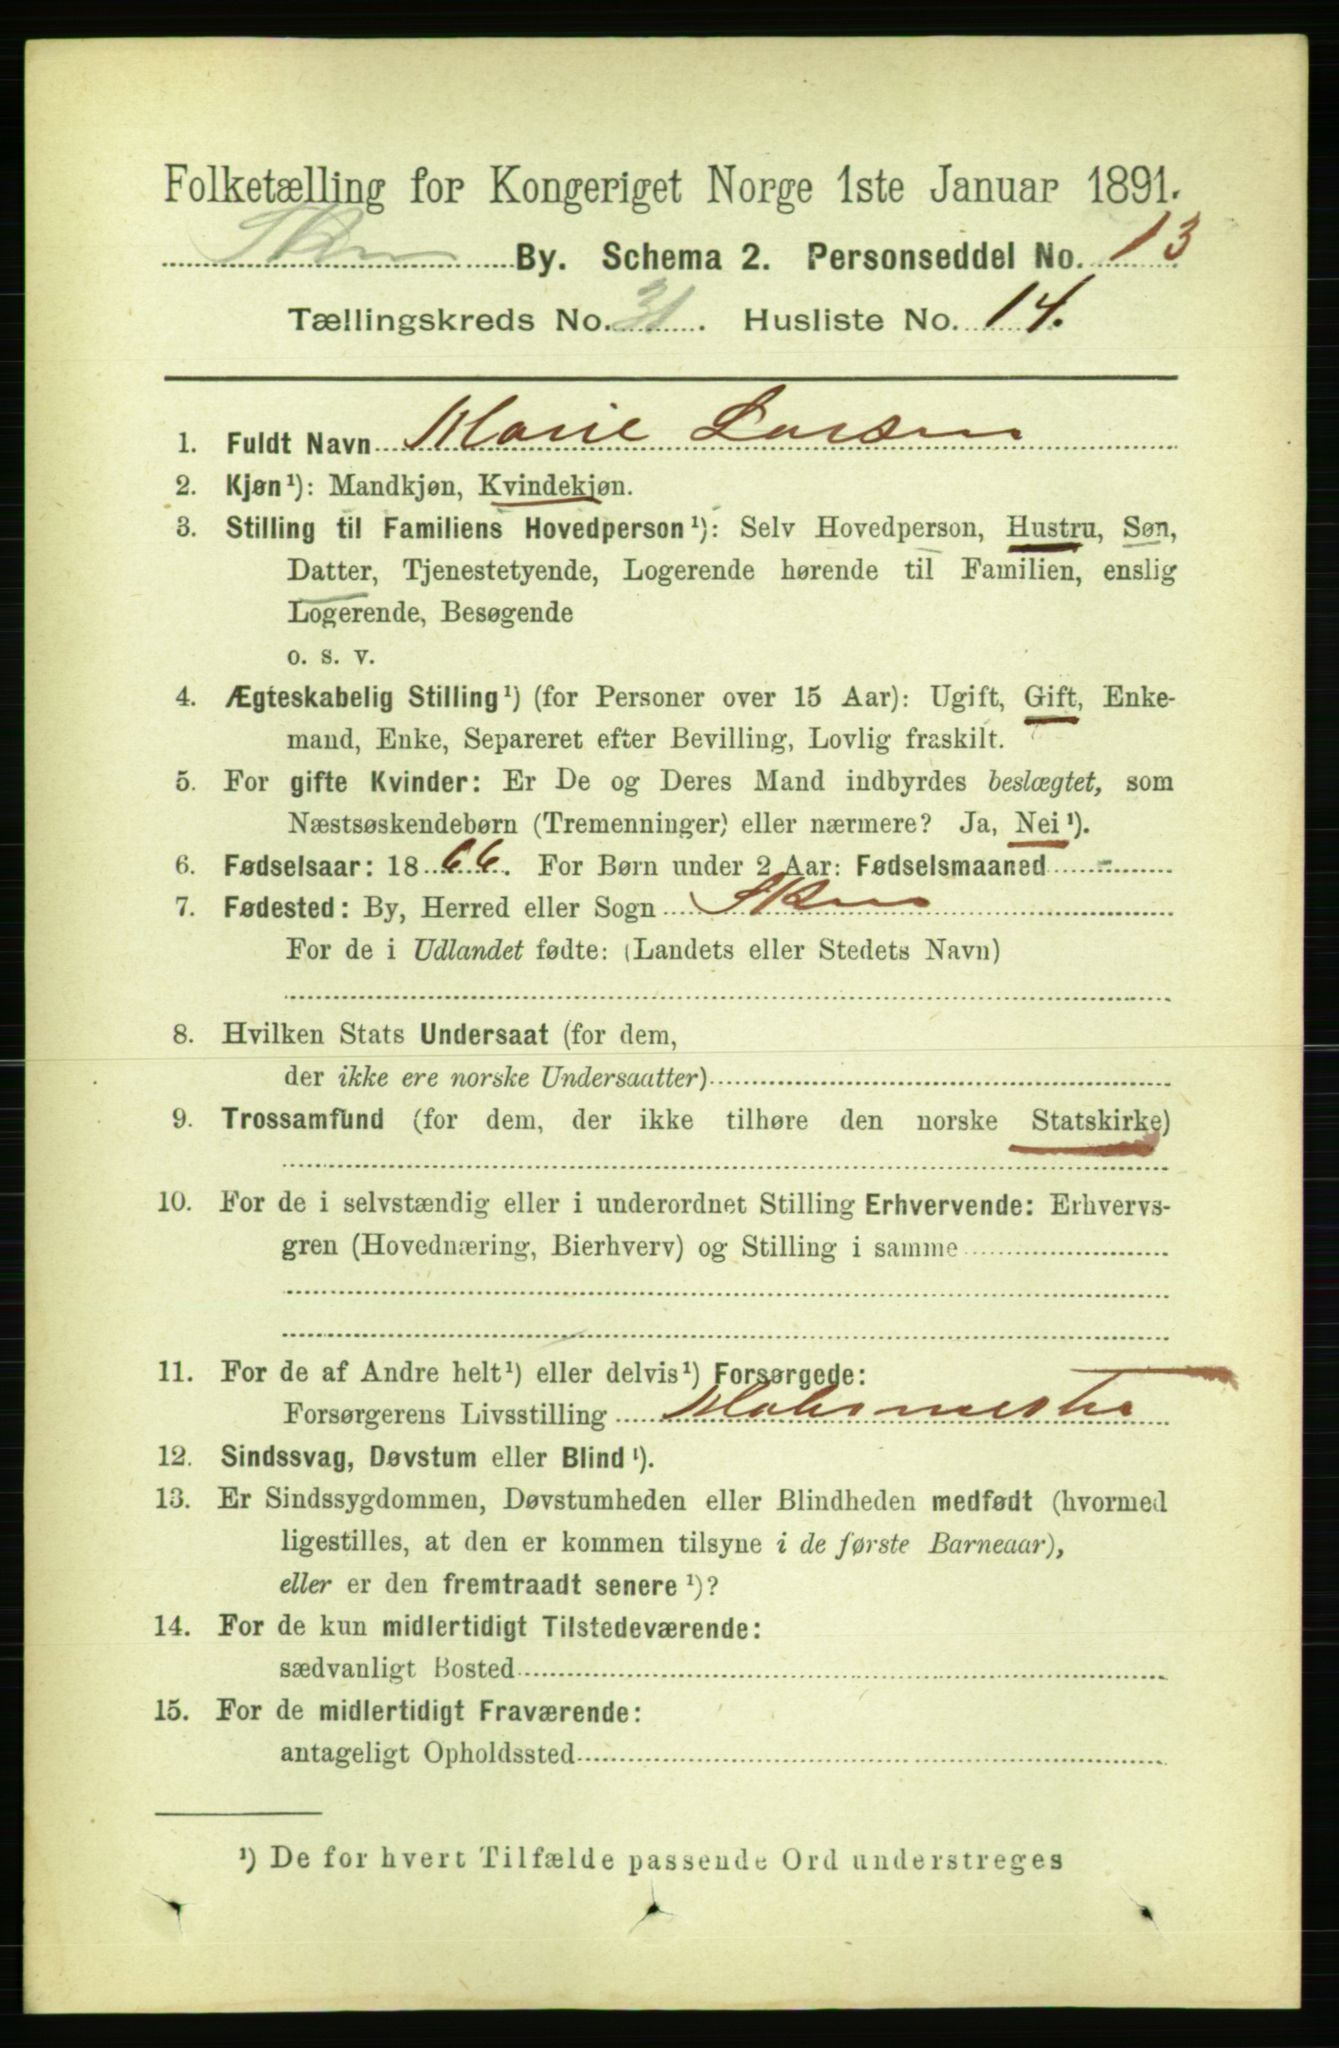 Folketælling for Kongeriget Norge 1ste Januar 1891.
Skien By. Schema 2. Personseddel No. 13
Tællingskreds No. 31. Husliste No. 14.
1. Fuldt Navn Marie Larsen
2. Kjøn¹): Mandkjøn, Kvindekjøn.
3. Stilling til Familiens Hovedperson¹): Selv Hovedperson, Hustru, Søn,
Datter, Tjenestetyende, Logerende hørende til Familien, enslig
Logerende, Besøgende
o. s. v.
4. Ægteskabelig Stilling¹) (for Personer over 15 Aar): Ugift, Gift, Enke-
mand, Enke, Separeret efter Bevilling, Lovlig fraskilt.
5. For gifte Kvinder: Er De og Deres Mand indbyrdes beslægtet, som
Næstsøskendebørn (Tremenninger) eller nærmere? Ja, Nei¹).
6. Fødselsaar: 1866. For Børn under 2 Aar: Fødselsmaaned -
7. Fødested: By, Herred eller Sogn Skien
For de i Udlandet fødte: (Landets eller Stedets Navn)
8. Hvilken Stats Undersaat (for dem,
der ikke ere norske Undersaatter)
9. Trossamfund (for dem, der ikke tilhøre den norske Statskirke)
10. For de i selvstændig eller i underordnet Stilling Erhvervende: Erhvervs-
gren (Hovednæring, Bierhverv) og Stilling i samme
11. For de af Andre helt¹) eller delvis¹) Forsørgede:
Forsørgerens Livsstilling Malermester
12. Sindssvag, Døvstum eller Blind¹).
13. Er Sindssygdommen, Døvstumheden eller Blindheden medfødt (hvormed
ligestilles, at den er kommen tilsyne i de første Barneaar),
eller er den fremtraadt senere¹)?
14. For de kun midlertidigt Tilstedeværende:
sædvanligt Bosted
15. For de midlertidigt Fraværende:
antageligt Opholdssted
¹) De for hvert Tilfælde passende Ord understreges